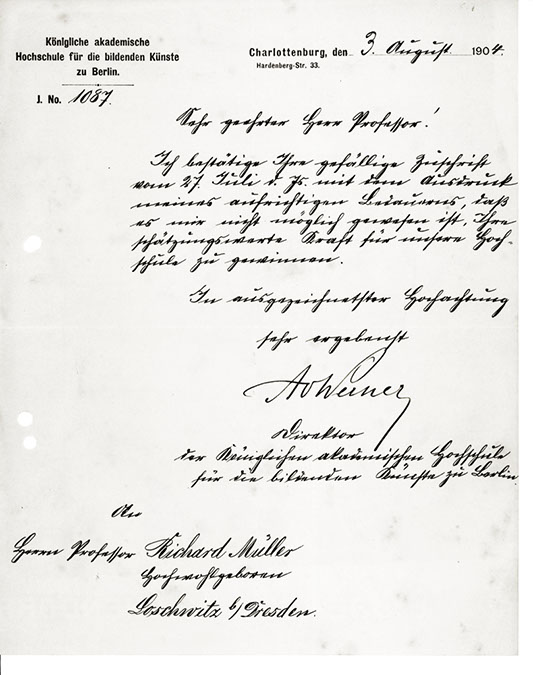 Königliche akademische
Hochschule für die bildenden Künste
zu Berlin.
J. No. 1087.
Charlottenburg, den 3. August 1904.
Hardenberg-Str. 33.
Sehr geehrter Herr Professor!
Ich bestätige Ihre gefällige Zuschrift
vom 27. Juli d. Js. mit dem Ausdruck
meines aufrichtigen Bedauerns, daß
es mir nicht möglich gewesen ist, Ihre
schätzungswerte Kraft für unsere Hoch-
schule zu gewinnen.
In ausgezeichnetster Hochachtung
sehr ergebenst
AvWerner
Direktor
der Königlichen akademischen Hochschule
für die bildenden Künste zu Berlin
An
Herrn Professor Richard Müller
Hochwohlgeboren
Loschwitz b/Dresden.